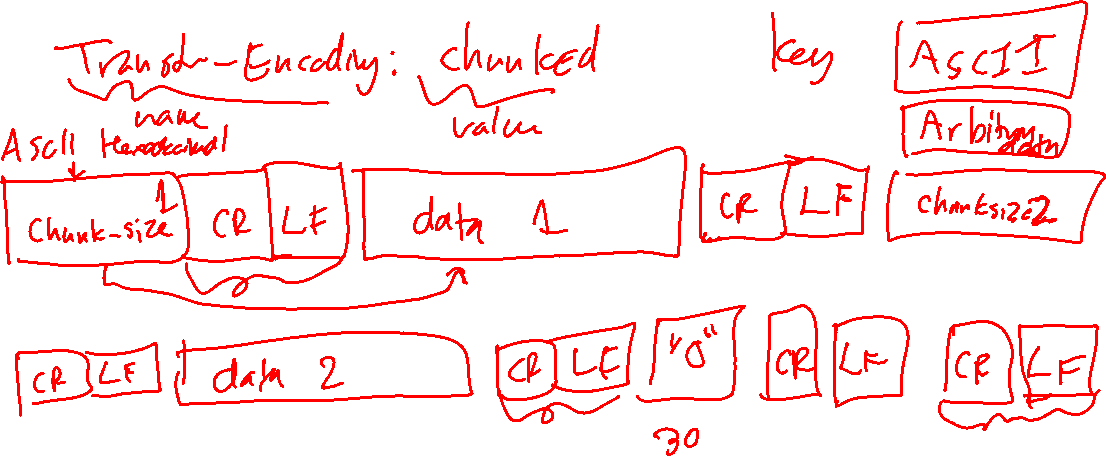 Transfer-Encoding: chunked key ASCII
name value Arbitrary data
Ascii Hexadecimal
chunk-size 1 CR LF data 1 CR LF chunksize2
CR LF data 2 CR LF "0" CR LF CR LF
30